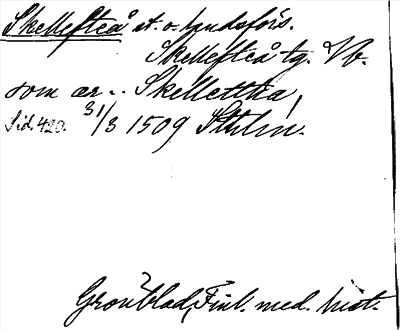 Skellefteå st. o. landsförs.
Skellefteå tg. Vb.
som ær.. Skellettha,
Sid. 420. 31/3 1509 Sthlm.
Grönblad, Finl. med. hist.